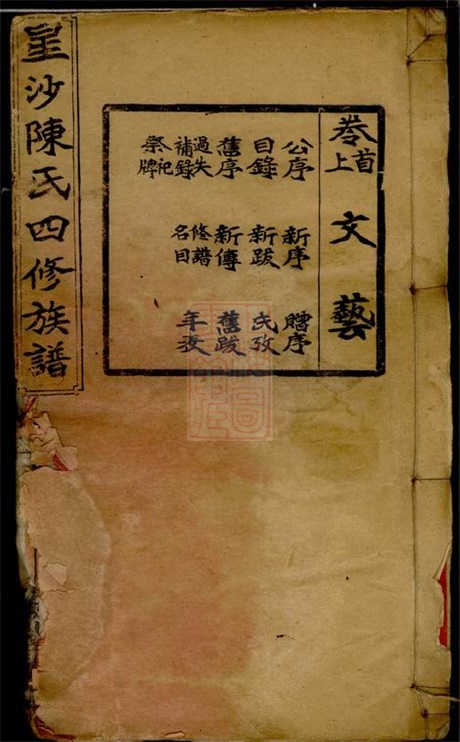 星沙陳氏四修族譜
卷首上 文藝
公序 新序 贈序
目錄 新跋 氏攷
舊序 新傳 舊跋
過失補錄 修譜名目 年
祭祀牌